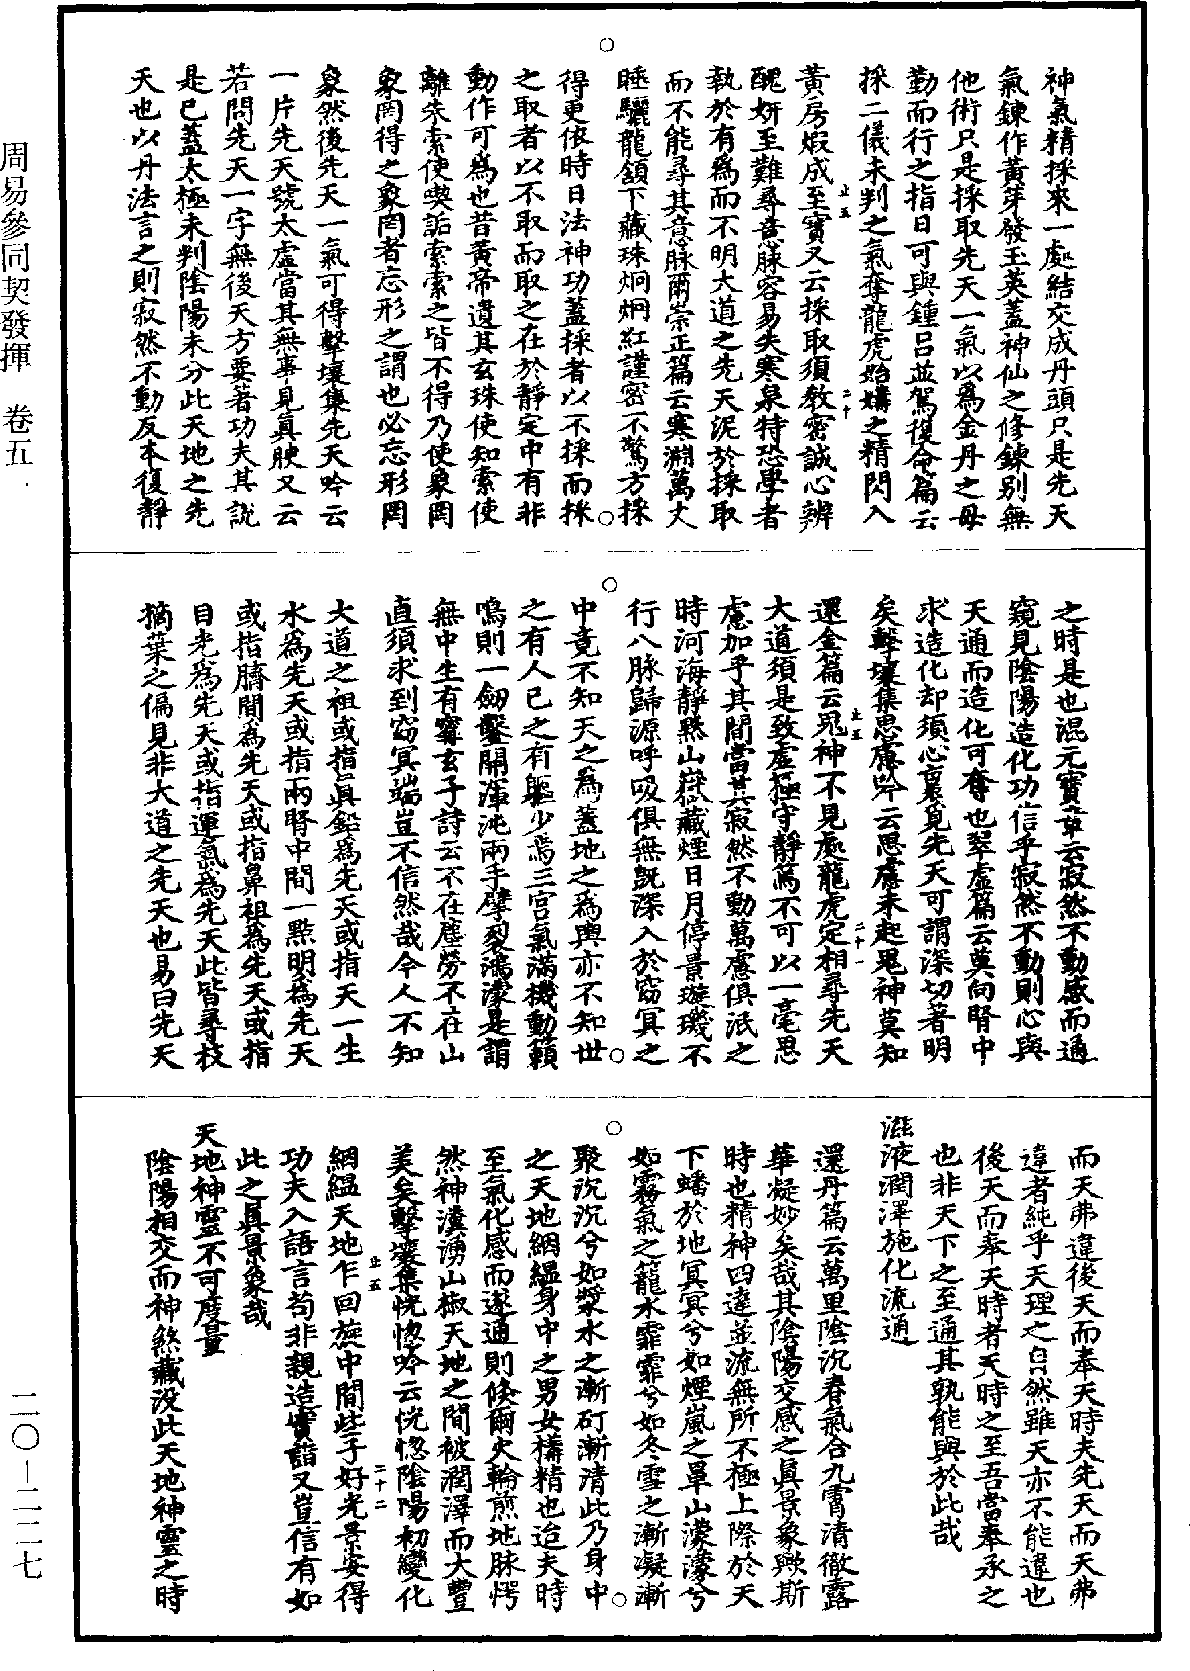 周易參同契發揮　卷五
神氣精採來一處結交成丹頭只是先天
氣鍊作黃芽發玉英蓋神仙之修鍊别無
他術只是採取先天一氣以為金丹之母
勤而行之指日可與鍾呂並駕復命篇云
採二儀未判之氣奪龍虎始媾之精閃入
黃房煅成至寶又云採取須教密誠心辨
醜妍至難尋意脉容易失寒泉特恐學者
執於有為而不明大道之先天泥於採取
而不能尋其意脉爾崇正篇云寒淵萬丈
睡驪龍頷下藏珠炯炯紅謹密不驚方採
得更依時日法神功蓋採者以不採而採
之取者以不取而取之在於靜定中有非
動作可為也昔黃帝遺其玄珠使知索使
離朱索使喫詬索索之皆不得乃使象罔
象罔得之象罔者忘形之謂也必忘形罔
象然後先天一氣可得擊壤集先天吟云
一片先天號太虛當其無事見真腴又云
若問先天一字無後天方要著功夫其說
是已蓋太極未判陰陽未分此天地之先
天也以丹法言之則寂然不動反本復靜
之時是也混元寶章云寂然不動感而通
窺見陰陽造化功信乎寂然不動則心與
天通而造化可奪也翠虛篇云莫向腎中
求造化却須心裏覓先天可謂深切著明
矣擊壤集思慮吟云思慮未起鬼神莫知
還金篇云鬼神不見處龍虎定相尋先天
大道須是致虛極守靜篤不可以一毫思
慮加乎其間當其寂然不動萬慮俱泯之
時河海靜默山嶽藏煙日月停景璇璣不
行八脉歸源呼吸俱無既深入於窈冥之
中竟不知天之為蓋地之為輿亦不知世
之有人已之有軀少焉三宮氣滿機動籟
鳴則一劒鑿開渾沌兩手擘裂鴻濛是謂
無中生有寗玄子詩云不在塵勞不在山
直須求到窈冥端豈不信然哉今人不知
大道之祖或指真鉛為先天或指天一生
水為先天或指兩腎中間一點明為先天
或指臍間為先天或指鼻祖為先天或指
目光為先天或指運氣為先天此皆尋枝
摘葉之偏見非大道之先天也易曰先天
而天弗違後天而奉天時夫先天而天弗
違者純乎天理之自然雖天亦不能違也
後天而奉天時者天時之至吾當奉承之
也非天下之至通其孰能與於此哉
滋液潤澤施化流通
還丹篇云萬里陰沉春氣合九霄清徹露
華凝妙矣哉其陰陽交感之真景象歟斯
時也精神四達並流無所不極上際於天
下蟠於地冥冥兮如煙嵐之罩山濛濛兮
如霧氣之籠水霏霏兮如冬雪之漸凝漸
聚沉沉兮如漿水之漸矴漸清此乃身中
之天地絪縕身中之男女構精也迨夫時
至氣化感而遂通則倏爾火輪煎地脉愕
然神瀵湧山椒天地之間被潤澤而大豐
美矣擊壤集恍惚吟云恍惚陰陽初變化
絪縕天地乍回旋中間些子好光景安得
功夫入語言苟非親造實詣又豈信有如
此之真景象哉
天地神靈不可度量
陰陽相交而神煞藏没此天地神靈之時
二〇－二二七